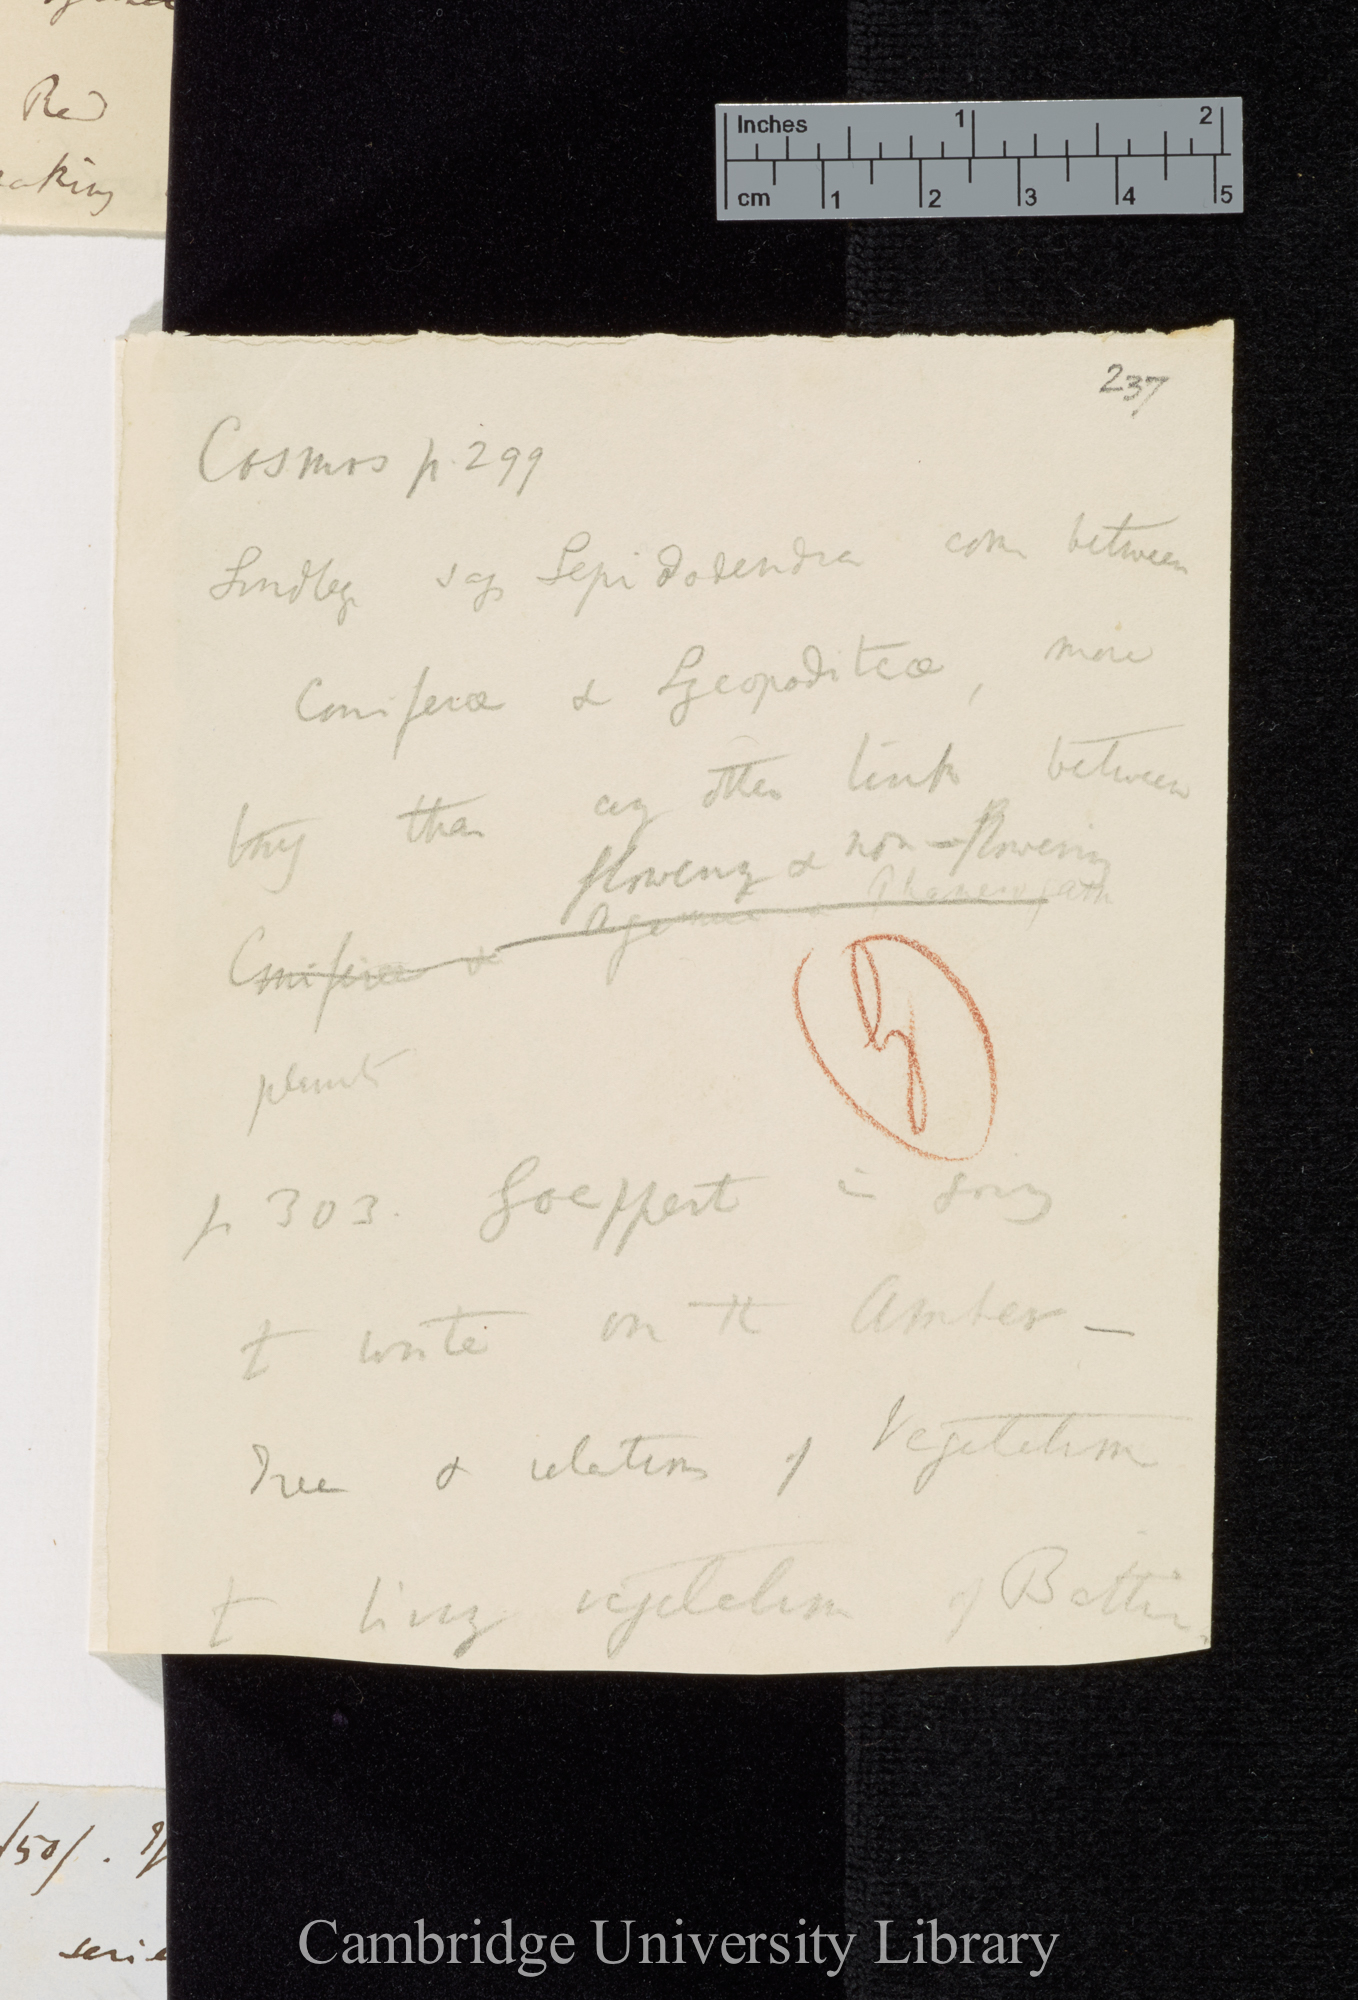 Red
Inches 1 2
cm 1 2 3 4 5
237
Cosmos p. 299
Lindley says Lepidodendra com between
Coniferæ & Lycopoditeæ, more
than any other link between
flowering & non-flowering
Coniferæ &
plants
p 303. Goeppert is going
to write on the Amber —
Tree & relations of Vegetation
to living vegetation of Baltic.
/50/.
Cambridge University Library